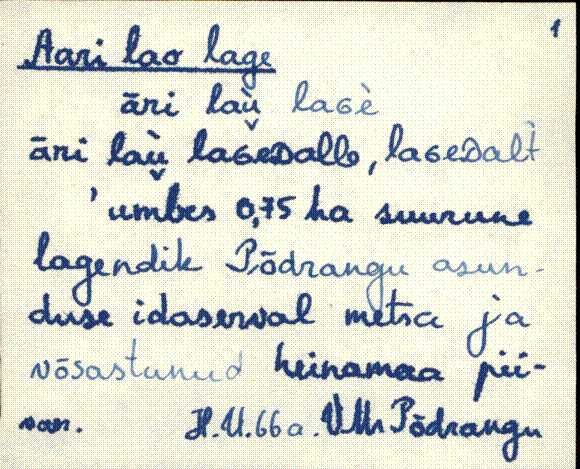 1
Aari lao lage
āri laù̬ laɢè
āri laù̬ laɢeᴅallo, laɢeᴅalt
'umbes 0,75 ha suurune
lagendik Põdrangu asun-
duse idaserval metsa ja
võsastunud heinamaa pii-
ran. H.U. 66 a. VMr Põdrangu